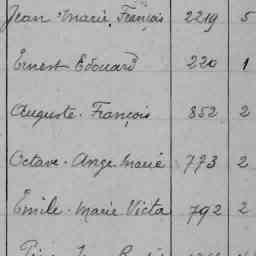 Jean Marie, François 2219 5
Ernest Edouard 220 1
Auguste - François 852 2
Octave - Ange Marie 773 2
Emile - Marie Victa 792 2